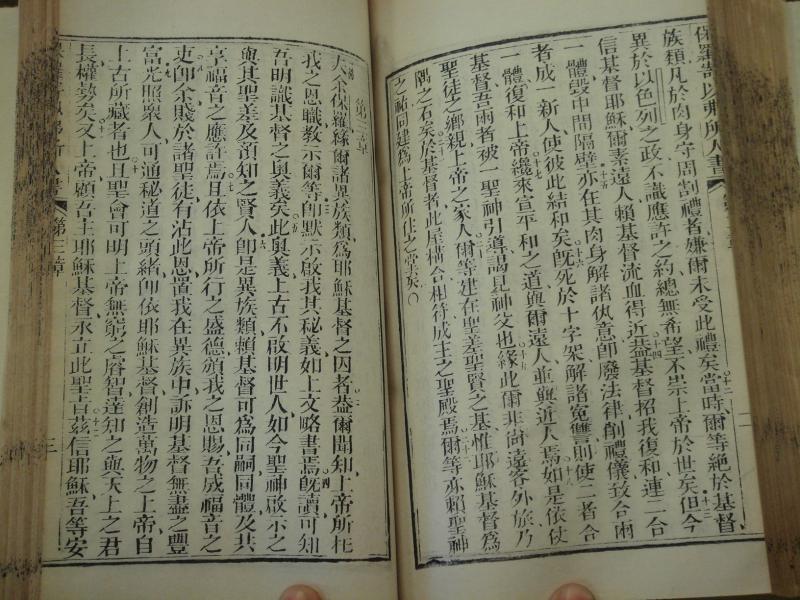 保羅寄以弗所人書
族類凡於肉身守周割禮者嫌爾未受此禮矣當時爾等絕於基督
異於以色列之政不識應許之約總無希望不崇上帝於世矣但今
信基督耶穌爾素遠人賴基督流血得近葢基督招我復和連二合
一體毀中間隔壁亦在其肉身解諸仇意即廢法律削禮儀致合兩
者成一新人使彼此結和矣既死於十字架解諸寃讐則使二者合
一體復和上帝纔來宣平和之道與爾遠人並與近人焉如是依仗
基督吾兩者被一聖神引道謁見神父也緣此爾非尙遠客外族乃
聖徒之鄉親上帝之家人爾等建在聖差聖賢之基惟耶穌基督爲
隅之石矣於基督者此屋搆合相符成主之聖殿焉爾等亦賴聖神
之祐同建爲上帝所住之堂矣
第三章
夫余保羅緣爾諸異族類爲耶穌基督之囚者葢爾聞知上帝所托
我之恩職敎示爾等即默示啟我其秘義如上文略書焉旣讀可知
吾明識基督之奧義矣此奧義上古不啟明世人如今聖神啟示之
與其聖差及預知之賢人即是異族類賴基督可爲同嗣同體及共
享福音之應許焉且依上帝所行之盛德頒我之恩賜吾成福音之
吏即余賤於諸聖徒有沾此恩置我在異族中訴明基督無盡之豐
富光照衆人可通秘道之頭緒即依耶穌基督創造萬物之上帝自
上古所藏者也且聖會可明上帝無窮之睿智達知之與天上之君
長權勢矣又上帝願吾主耶穌基督永立此聖旨茲信耶穌吾等安
第三章
三